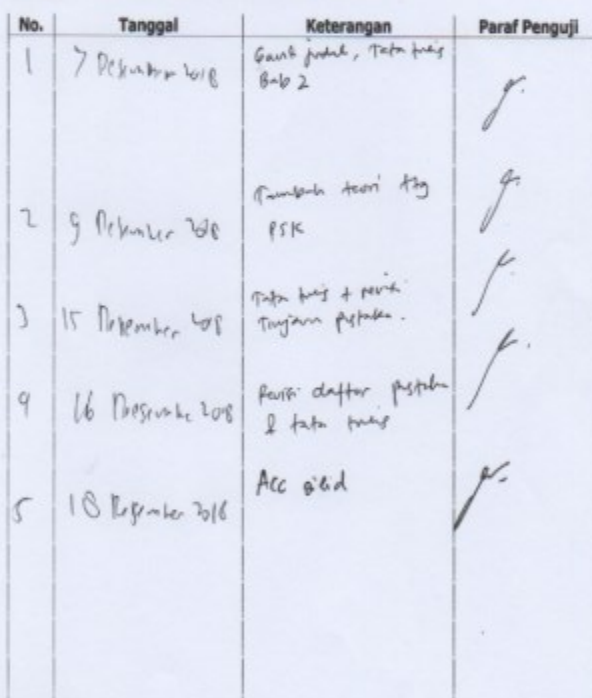 No. Tanggal Keterangan Paraf Penguji
1 7 Desember 2018 Ganti judul, Tata tulis
Bab 2
2 9 Desember 2018 Tambah teori ttg
PSK
3 15 Desember 2018 Tata tulis + revisi
Tinjauan pustaka.
4 16 Desember 2018 Revisi daftar pustaka
& tata tulis
5 18 Desember 2018 Acc jilid